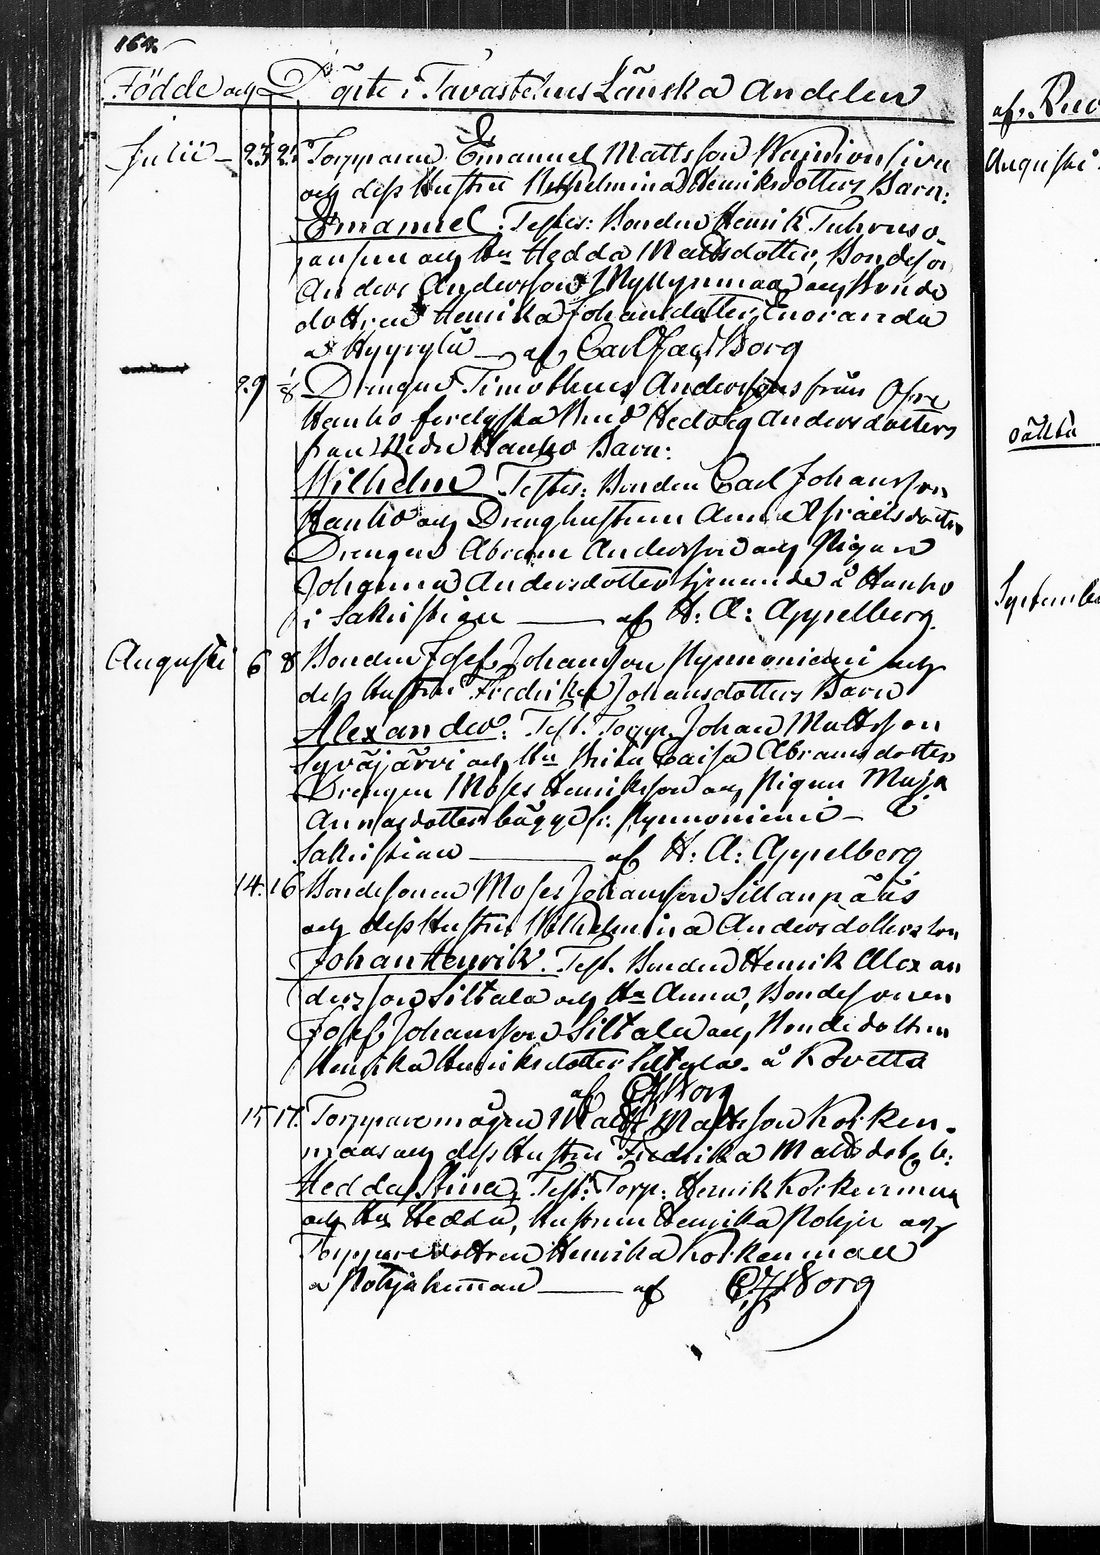 164.
Födde och Döpte i Tavastehus Länska Andelen
Julii 23 25 Torpparen Emanuel Mattsson
och dess Hustru Wilhelmina Henriksdotters Barn:
Emanuel. Testes: Bonden Henrik
och Hu Hedda Mattsdotter, Bondeson
Anders Andersson Myllynmaa och Bonde
dottren Henrika Johansdotter
a Hyyrylä af Carl Jac Borg
29 1/8 Drengen Timotheus Anderssons från Öfre
Hanho Hedvig Andersdotters
från Hanho Barn:
Wilhelm. Testes: Bonden Carl Johansson
Hanho och Dreng hustrun Anna Israelsdotter
Drengen Abram Andersson och Pigan
Johanna Andersdotter tjenande å Hanho
i Sakristian af H: A: Appelberg.
Augusti 6 8 Bonden Josef Johansson Nynnoniemi och
dess Hustru Fredrika Johansdotters Barn
Alexander. Test. Torpp. Johan Mattsson
Syväjärvi och Hu Brita Caisa Abramsdotter
Drengen Moses Henriksson och Pigan Maja
Annasdotter bägge fr. Nynnoniemi i
Sakristian af H: A: Appelberg
14. 16 Bondesonen Moses Johansson Sillanpääs
och dess Hustru Wilhelmina Andersdotters son
Johan Henrik. Test. Bonden Henrik Alexan
dersson Siltala och Hu Anna, Bondesonen
Josef Johansson Siltala och Bondedottren
Henrika Henriksdotter Siltala. å Rovetta
af CJ Borg
15 17. Torpparemågen Matts Mattsson Korken-
maas och dess Hustru Fredrika Mattsdots b:
Hedda Stina, Test: Torp: Henrik Korkenmaa
och Hu Hedda, Hustrun Henrika Pohja och
Torpparedottren Henrika Korkenmaa
a Pohjahuman af CJ Borg
Augusti
Septembe